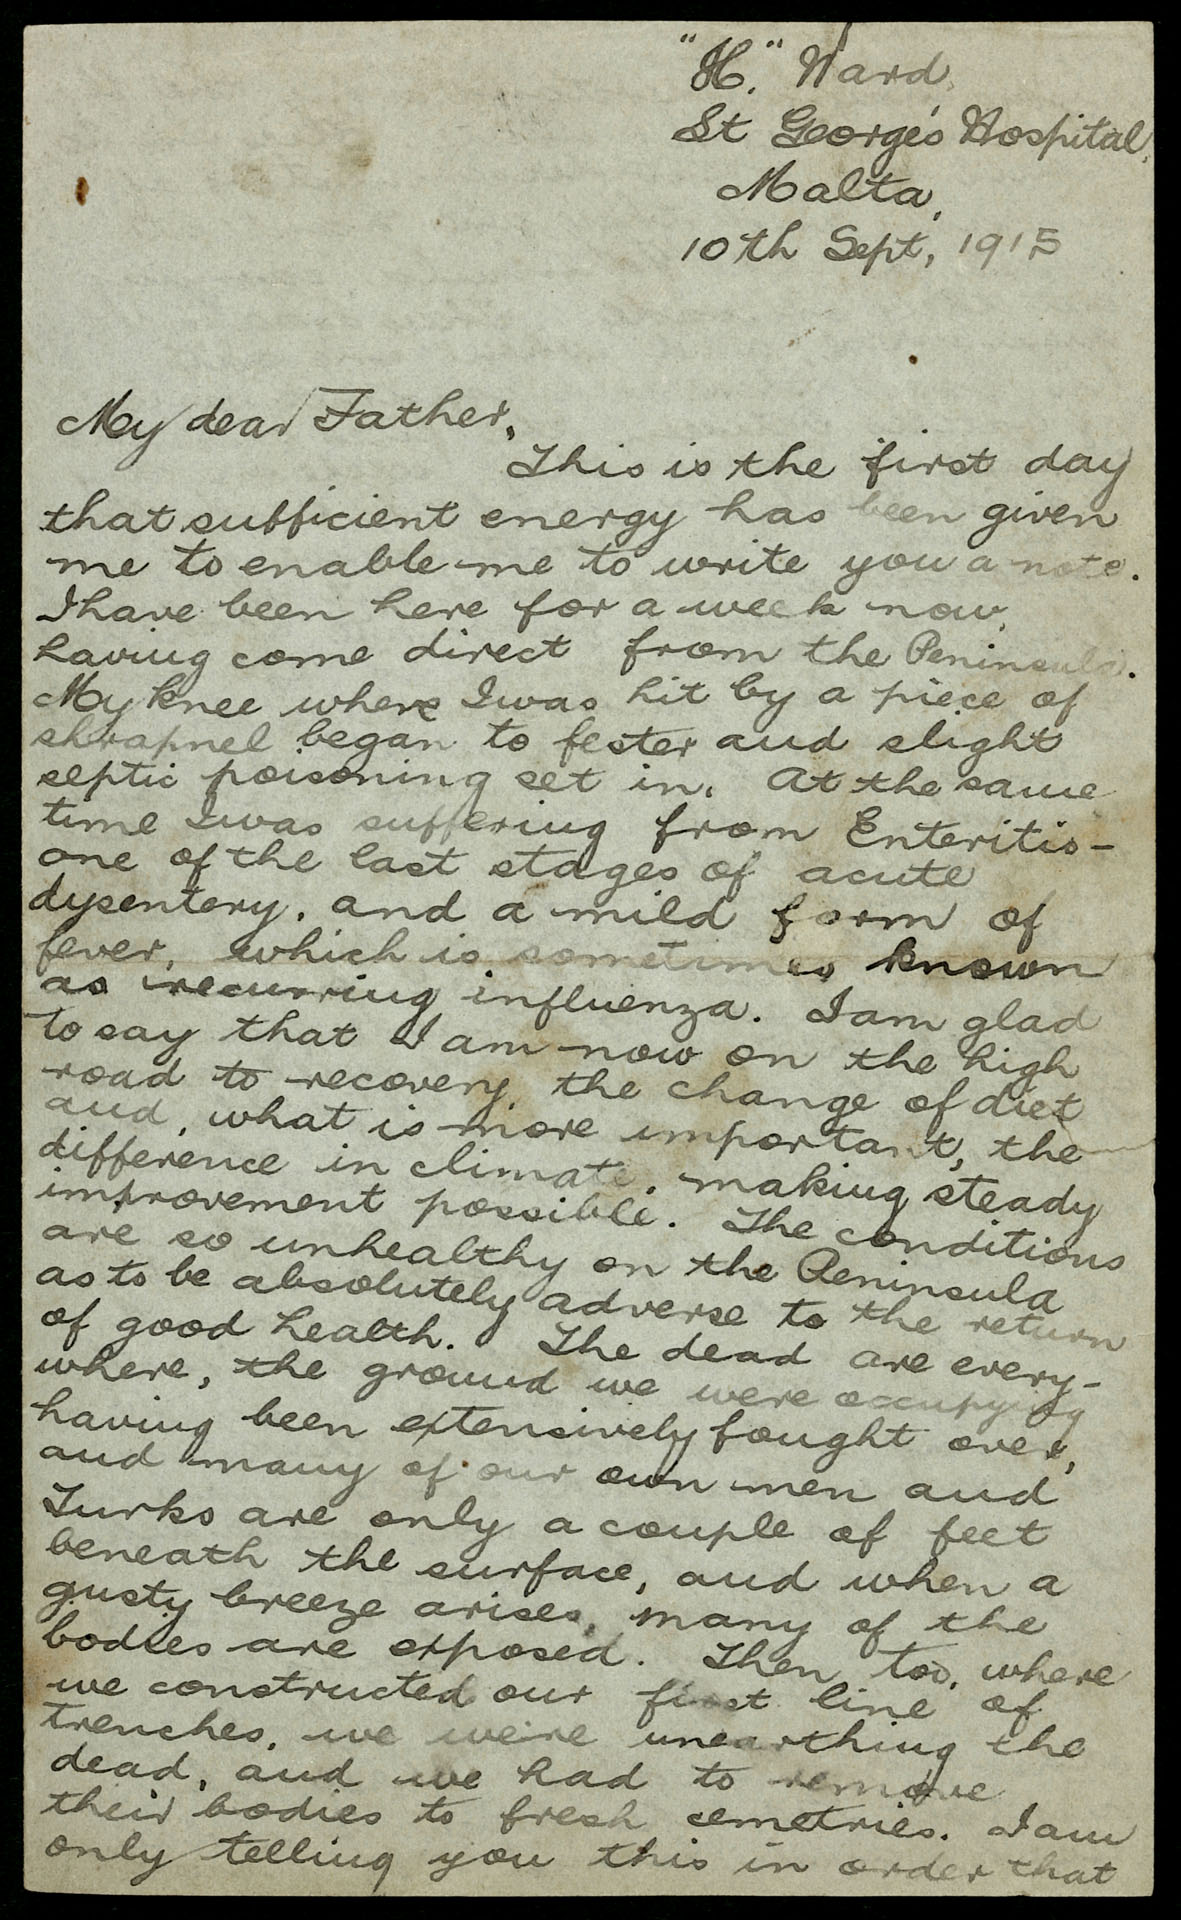 "H." Ward,
St George's Hospital,
Malta,
10th Sept, 1915
My dear Father,
This is the first day
that sufficient energy has been given
me to enable me to write you a note.
I have been here for a week now,
having come direct from the Peninsula.
My knee where I was hit by a piece of
shrapnel began to fester and slight
septic poisoning set in. At the same
time I was suffering from Enteritis -
one of the last stages of acute
dysentery, and a mild form of
fever, which is sometimes known
as recurring influenza. I am glad
to say that I am now on the high
road to recovery, the change of diet
and, what is more important, the
difference in climate, making steady
improvement possible. The conditions
are so unhealthy on the Peninsula
as to be absolutely adverse to the return
of good health. The dead are every-
where, the ground we were occupying
having been extensively fought over,
and many of our own men and
Turks are only a couple of feet
beneath the surface, and when a
gusty breeze arises, many of the
bodies are exposed. Then, too, where
we constructed our first line of
trenches, we were unearthing the
dead, and we had to remove
their bodies to fresh cemetries. I am
only telling you this in order that